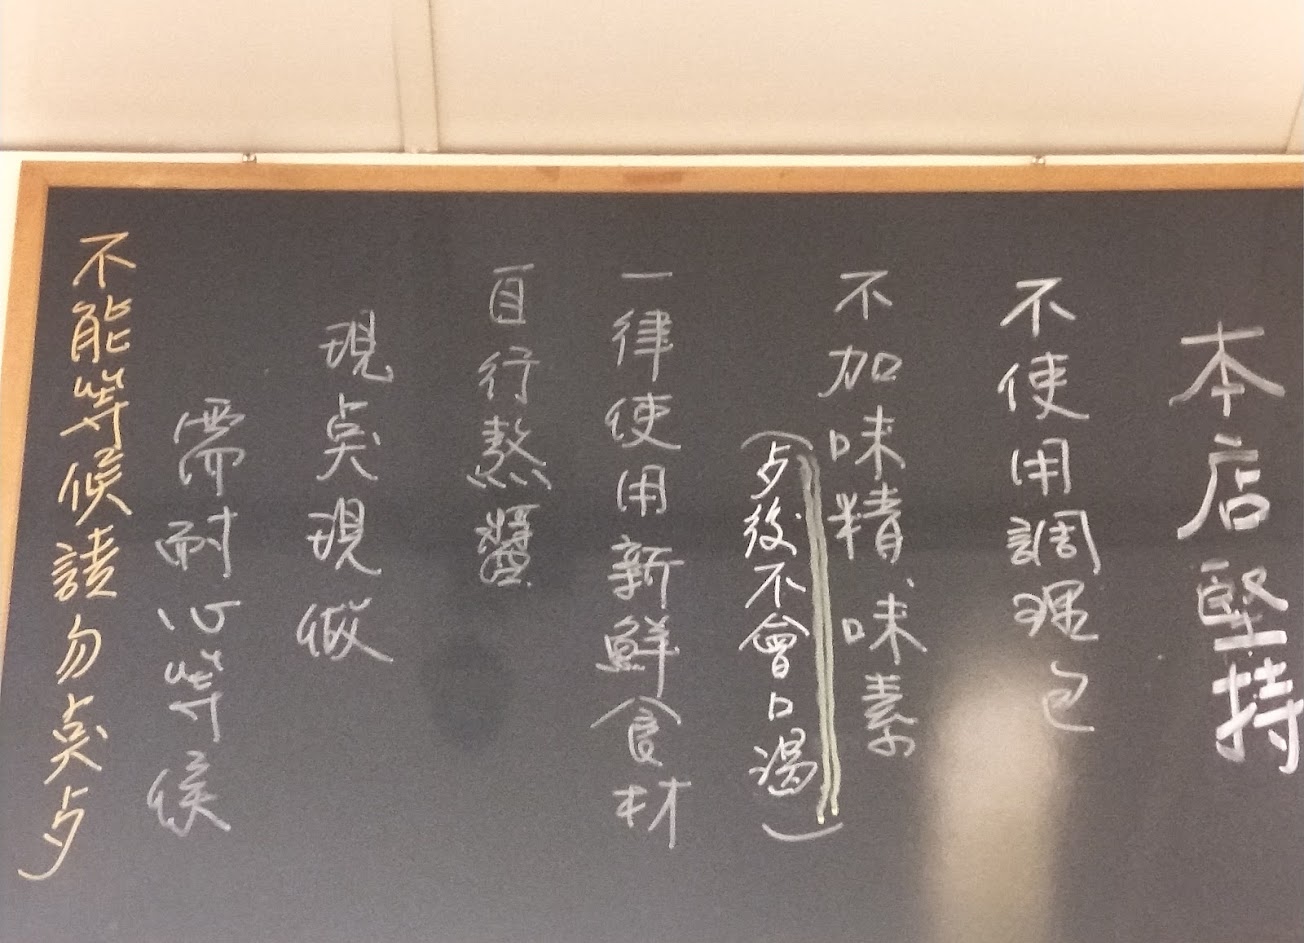 本店堅持
不使用調理包
不加味精、味素
(歺後不會口渴)
一律使用新鮮食材
自行熬醬
現奌現做
需耐心等候
不能等候請勿奌歺